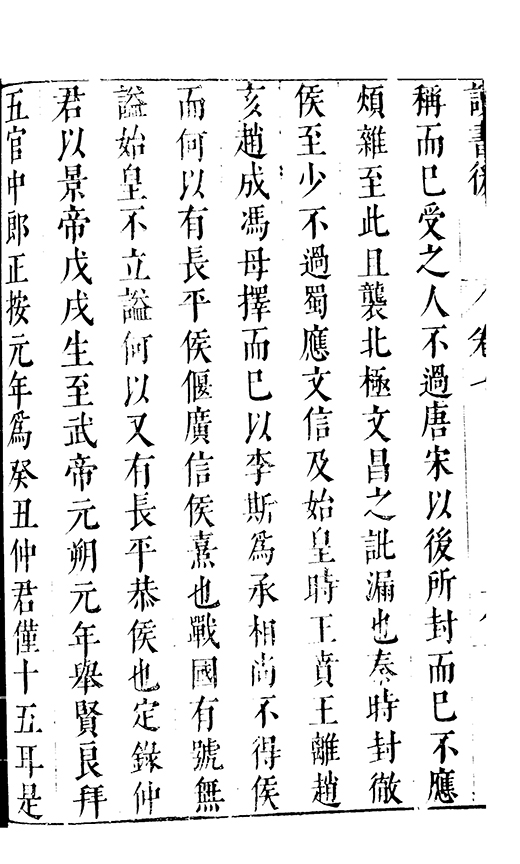 讀書後 卷七
稱而已受之人不過唐宋以後所封而已不應
煩雜至此且襲北極文昌之訛漏也秦時封徹
侯至少不過蜀應文信及始皇時王賁王離趙
亥趙成馮母擇而已以李斯爲承相尚不得侯
而何以有長平侯偃廣信侯熹也戰國有號無
謚始皇不立謚何以又有長平恭侯也定錄仲
君以景帝戊戌生至武帝元朔元年舉賢良拜
五官中郎正按元年爲癸丑仲君僅十五耳是